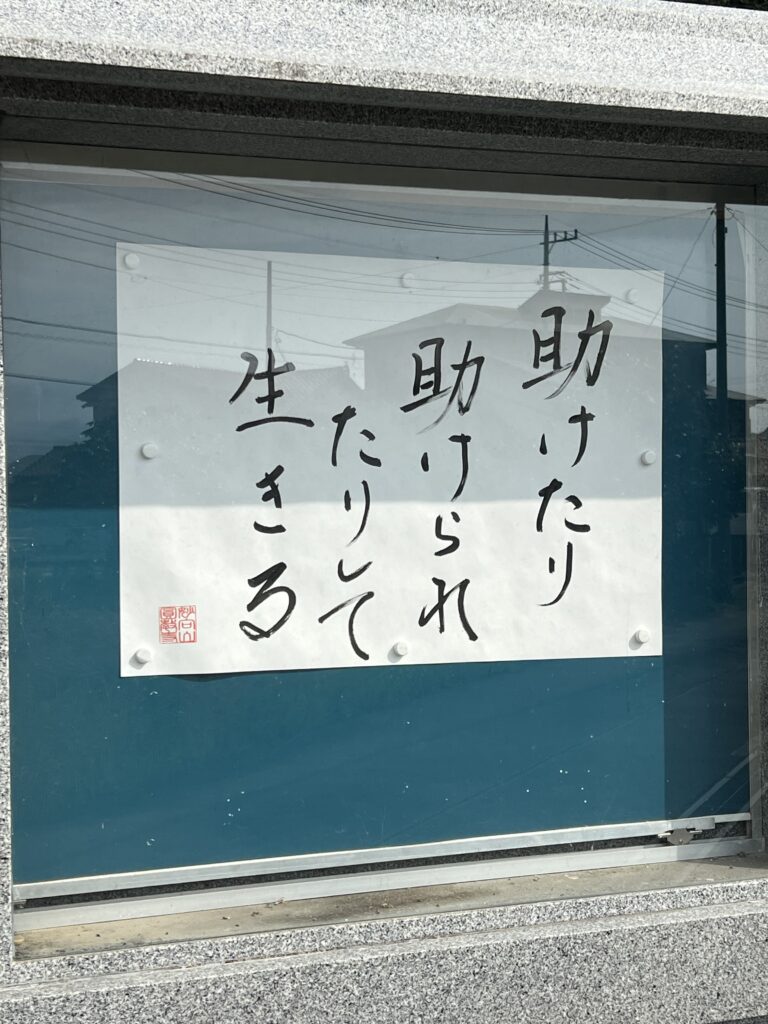 助けたり
助けられ
たりして
生きる